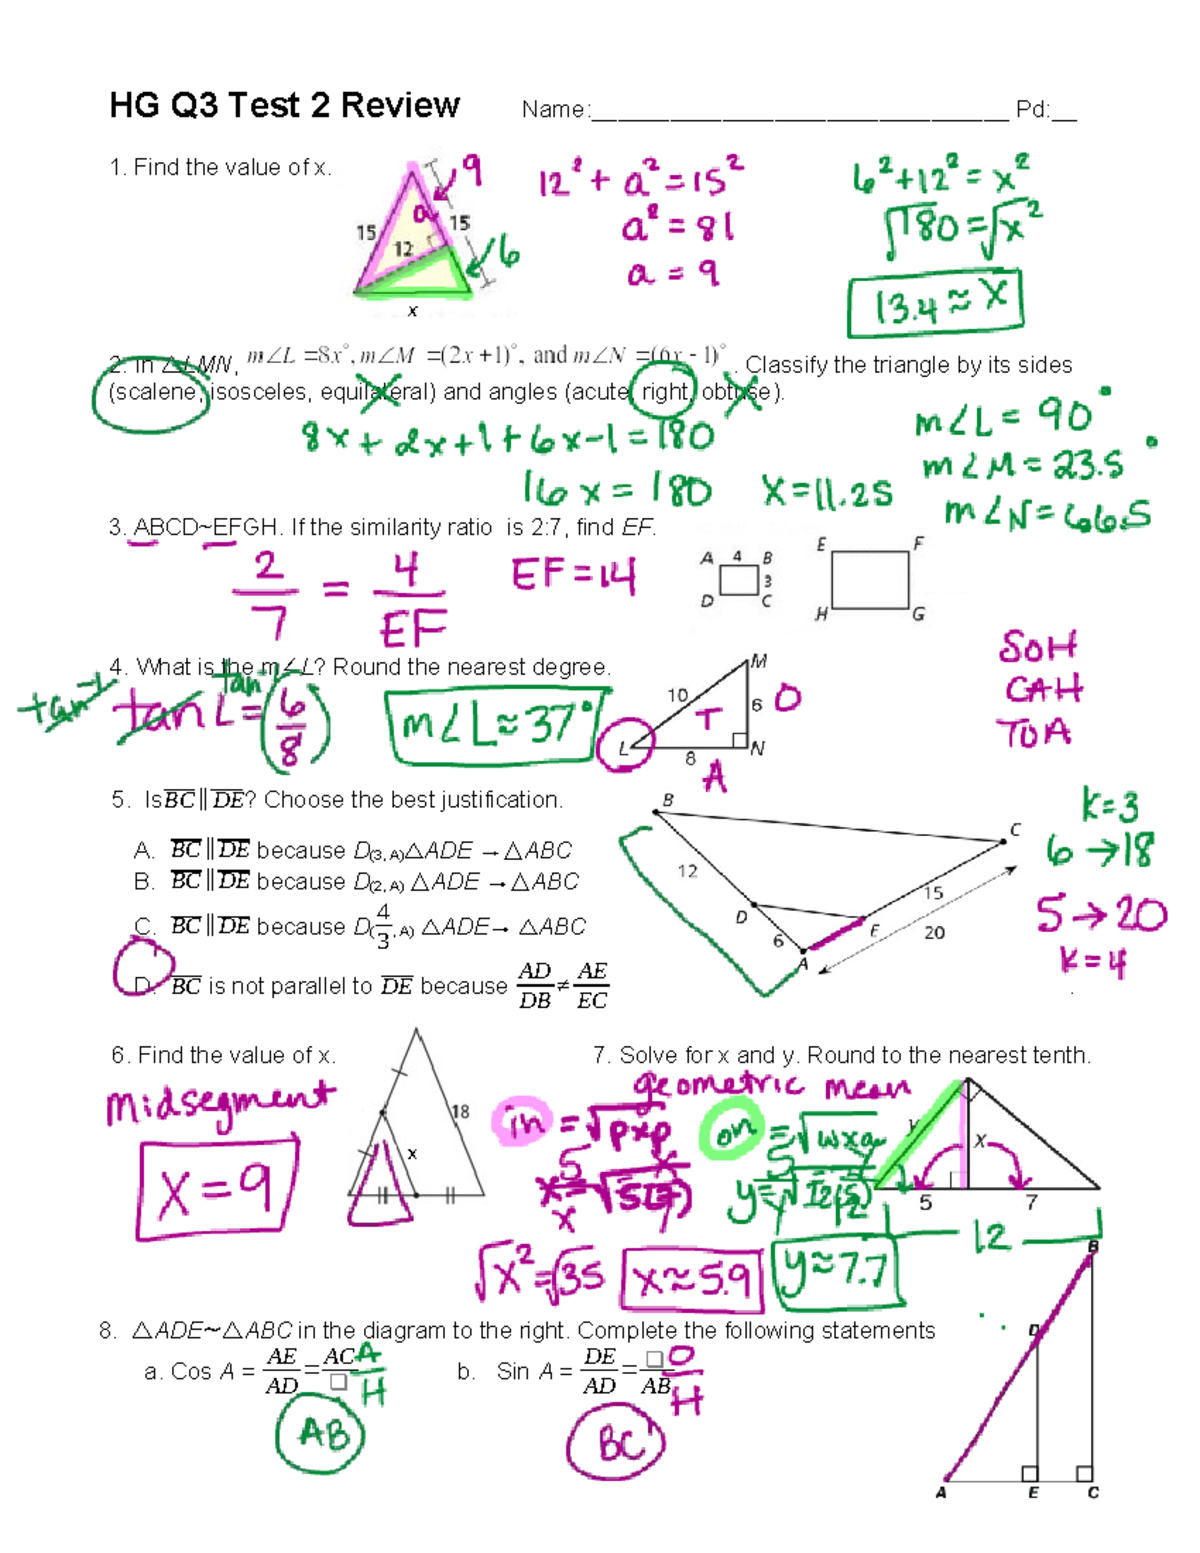 HG Q3 Test 2 Review Name:______________________________ Pd:__
1. Find the value of x.
15
12
a
15
9
6
x
12² + a² = 15²
a² = 81
a = 9
6² + 12² = x²
√180 = √x²
13.4 ≈ x
2. In △LMN, m∠L =8x°, m∠M =(2x +1)°, and m∠N =(6x - 1)°. Classify the triangle by its sides
(scalene, isosceles, equilateral) and angles (acute, right, obtuse).
8x + 2x + 1 + 6x - 1 = 180
16x = 180 x = 11.25
m∠L = 90°
m∠M = 23.5°
m∠N = 66.5
3. ABCD~EFGH. If the similarity ratio is 2:7, find EF.
2/7 = 4/EF
EF = 14
A 4 B
3
D C
E F
H G
4. What is the m∠L? Round the nearest degree.
tan⁻¹ tan L = tan⁻¹(6/8)
m∠L ≈ 37°
M
10
6 O
T
L 8 N
A
SOH
CAH
TOA
5. Is BC || DE? Choose the best justification.
A. BC || DE because D(3, A)△ADE → △ABC
B. BC || DE because D(2, A) △ADE → △ABC
C. BC || DE because D(4/3, A) △ADE → △ABC
D. BC is not parallel to DE because AD/DB ≠ AE/EC
B
C
12
D
15
E
20
6
A
k=3
6 → 18
5 → 20
k = 4
6. Find the value of x.
midsegment
x = 9
18
x
7. Solve for x and y. Round to the nearest tenth.
geometric mean
in = √pxp
on = √wxp
x = √5(7)
5 x
x 7
y = √12(5)
√x² = √35 x ≈ 5.9 y ≈ 7.7
y
x
5 7
12
8. △ADE~△ABC in the diagram to the right. Complete the following statements
a. Cos A = AE/AD = AC/□ A/H
b. Sin A = DE/AD = □/AB O/H
AB
BC
B
D
A E C